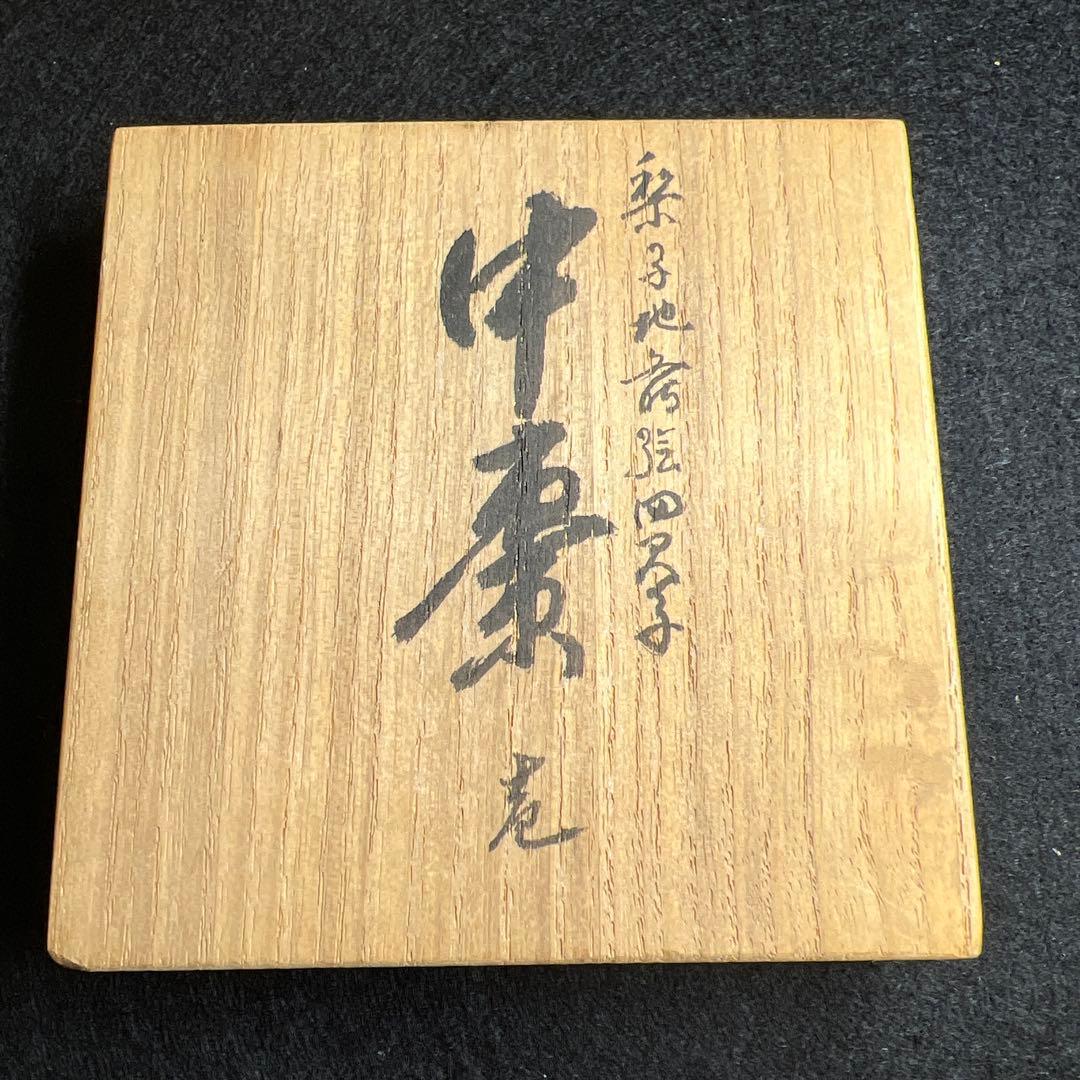 梨子地蒔絵四君子
中棗
壱